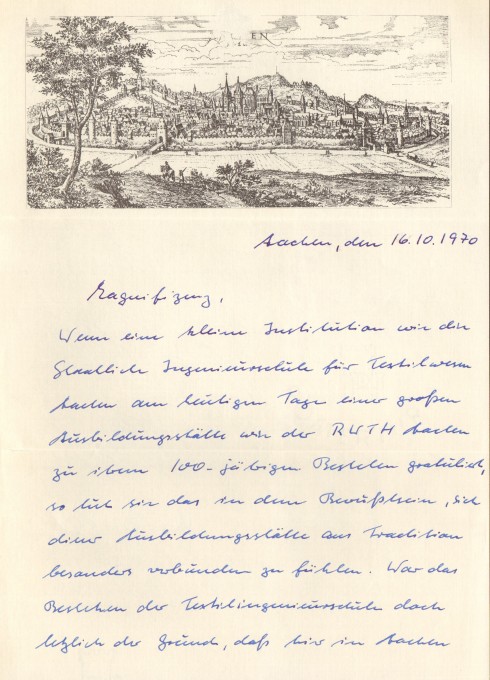 EN
Aachen, den 16.10.1970
Magnifizenz,
Wenn eine kleine Institution wie die
Staatliche Ingenieurschule für Textilwesen
Aachen am heutigen Tage einer großen
Ausbildungsstätte wie der RWTH Aachen
zu ihrem 100-jährigen Bestehen gratuliert,
so tut sie das in dem Bewußtsein, sich
dieser Ausbildungsstätte aus Tradition
besonders verbunden zu fühlen. War das
Bestehen der Textilingenieurschule doch
letztlich der Grund, daß hier in Aachen